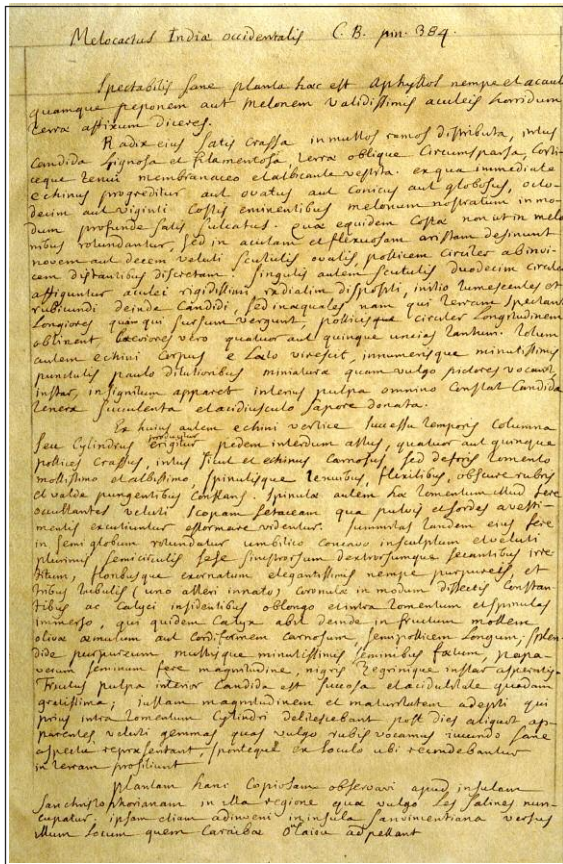 Melocactus Indiæ occidentalis C. B. pin. 384.
Spectabilis sane planta hæc est aphyllos nempe et acaulis
quamque peponem aut Melonem validissimis aculeis horridum
terra affixum diceres.
Radix eius satis crassa in multos ramos distributa, intus
candida lignosa et filamentosa, terra oblique circumsparsa, corti-
ceque tenui membranaceo et albicante vestita. ex qua immediate
echinus progreditur aut ovatus aut conicus aut globosus, octo-
decim aut viginti costis eminentibus melonum nostratum in mo-
dum profunde satis sulcatus. quæ equidem costæ non ut in melo
nibus rotundantur, sed in acutam et flexuosam aristam desinunt
novem aut decem veluti scutulis ovalis, pollicem circiter abinvi-
cem distantibus discretam. singulis autem scutulis duodecim circiter
affiguntur aculei rigidissimi radiatim dispositi, initio rumescentes et
rubicundi deinde candidi, sed inæquales nam qui terram spectant
longiores quam qui sursum vergunt, pollicisque circiter longitudinem
obtinent, breviores vero quatuor aut quinque uncias tantum. totum
autem echini corpus e læto virescit, innumerisque minutissimis
punctulis paulo dilutioribus miniatura quam vulgo pictores vocant
instar, insignitum apparet interius pulpa omnino constat candida
tenera succulenta et acidiusculo sapore donata.
Ex huius autem echini vertice successu temporis columna
seu cylindrus erigitur producitur pedem interdum altus, quatuor aut quinque
pollices crassus, intus sicut et echinus carnosus, sed deforis tomento
mollissimo et albissimo, spinulisque tenuibus, flexilibus, obscure rubris
et valde pungentibus constans. spinulæ autem hæ tomentum illud fere
occultantes veluti scopam setaceam qua pulvis et sordes a vesti-
mentis excutiuntur efformare videntur. summitas tandem eius fere
in semiglobum rotundatur umbilico concavo insculptum et veluti
plurimis semicirculis sese sinistrorsum dextrorsumque secantibus irre-
titum, floribusque exornatum elegantissimis nempe purpureis, et
tribus tubulis (uno alteri innato) coronulæ in modum dissectis constan-
tibus ac calyci insidentibus oblongo et intra tomentum et spinulas
immerso, qui quidem calyx abit deinde in fructum mollem
olivæ æmulum aut cordiformem carnosum, semipollicem longum, splen-
dide purpureum multisque minutissimis seminibus fætum, papa-
verum seminum fere magnitudine, nigris negrinique instar asperatis.
Fructus pulpa interior candida est succosa et aciditate quadam
gratissima; iustam magnitudinem et maturitatem adepti qui
prius intra tomentum cylindri delitescebant post dies aliquot ap-
parentes veluti gemmas quas vulgo rubis vocamus iucundo sane
aspectu repræsentant, sponteque ex loculo ubi recondebantur
in terram prosiliunt
Plantam hanc copiosam observavi apud insulam
Sanchristophorianam in illa regione quæ vulgo Les Salines nun-
cupatur. ipsam etiam adinveni in insula sanvincentiana versus
illum locum quem Caraibæ Olaiou adpellant